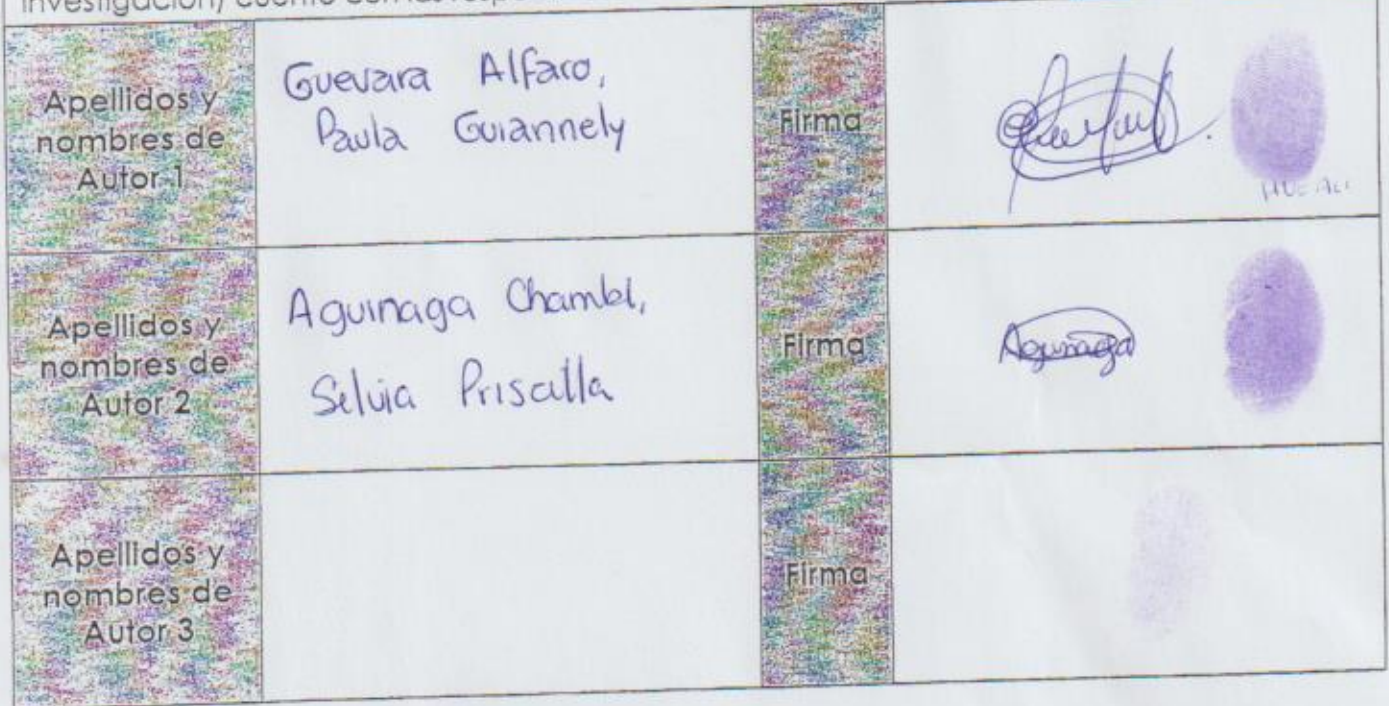 Apellidos y
nombres de
Autor 1
Guevara Alfaro,
Paula Guiannely
Firma
Apellidos y
nombres de
Autor 2
Aguinaga Chambl,
Silvia Priscilla
Firma
Aguinaga
Apellidos y
nombres de
Autor 3
Firma